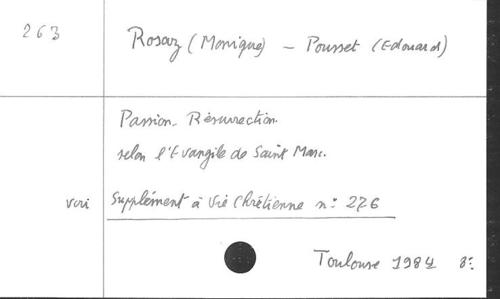 263
Rosaz (Monique) - Pousset (Edouard)
Passion - Résurrection
selon l'Evangile de Saint Marc.
voir Supplément à Vie Chrétienne n: 276
Toulouse 1984 8: